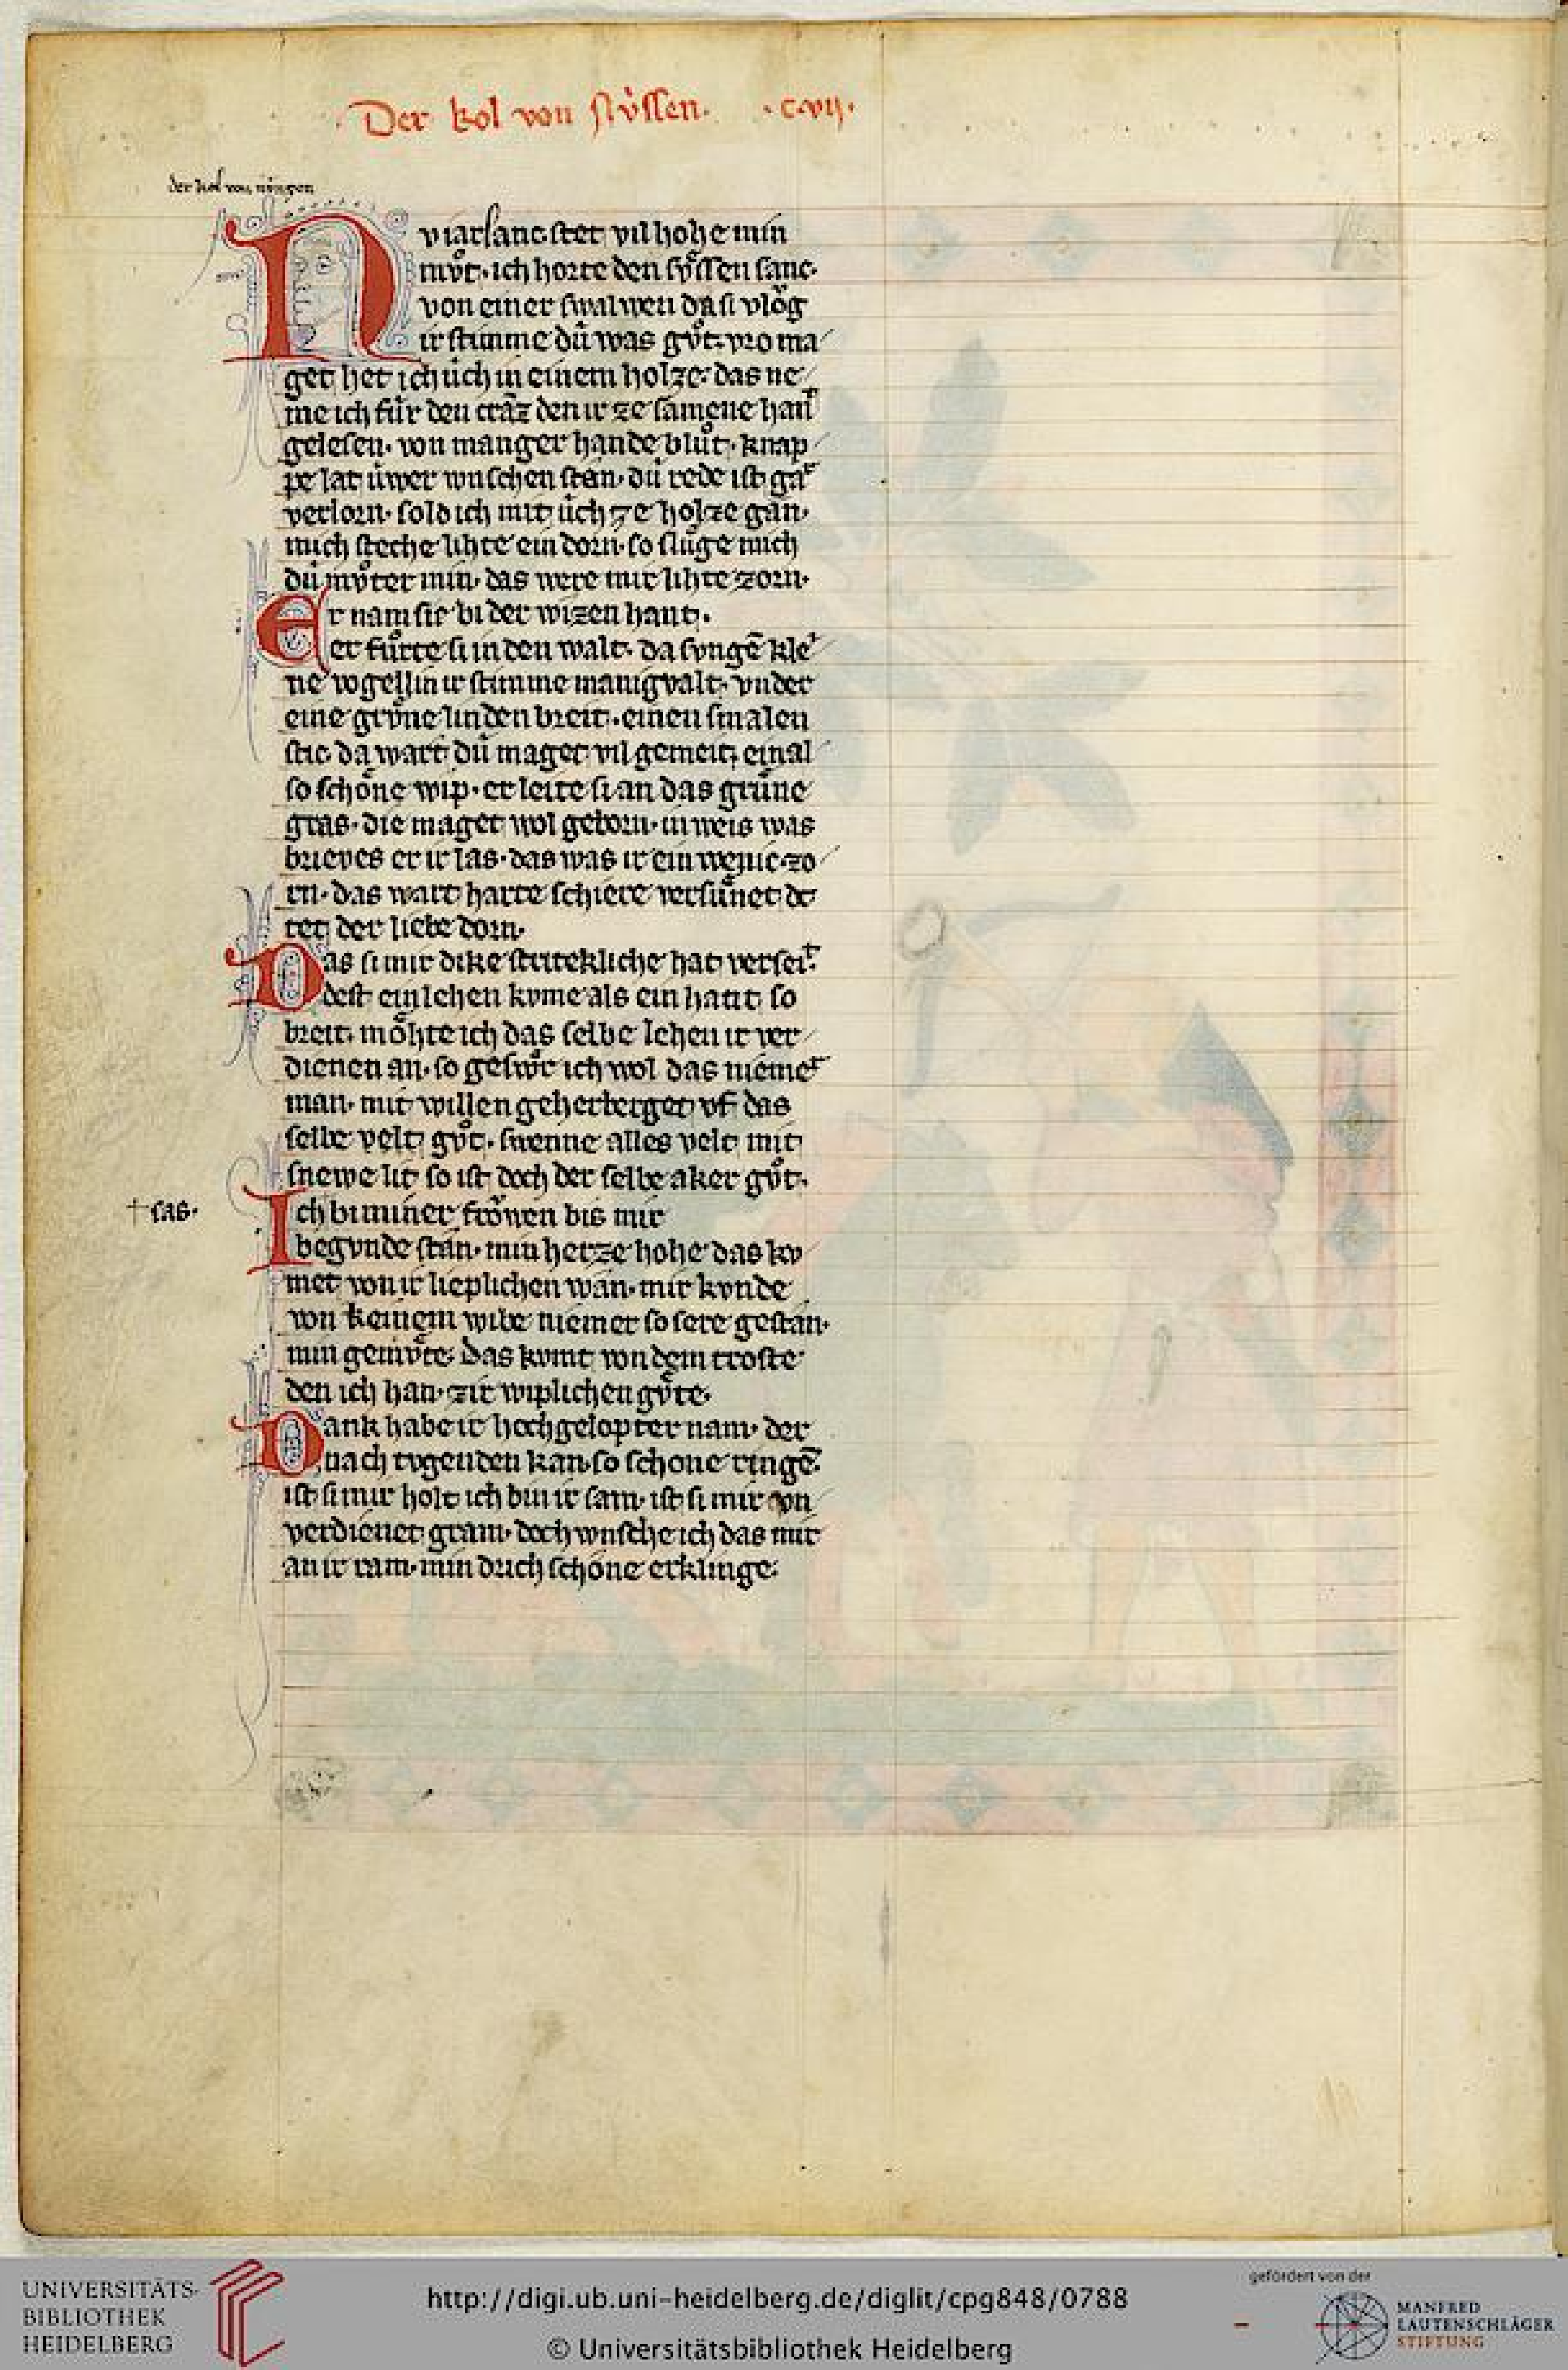 Der kol von nv̍ssen. .cvij.
der kol von nússen
Nv iarlanc stet vil hohe min
mv̊t. ich horte den sv̊ssen sanc.
von einer swalwen da si vlog
ir stimme dú was gv̊t. vro ma
get het ich úch in einem holze. das ne
me ich fúr den craz den ir ze samene hant
gelesen. von manger hande blůt. knap
pe lat úwer wnschen stan. dú rede ist gar
verlorn. sold ich mit úch ze holze gan.
mich steche lihte ein dorn. so slůge mich
dú mv̊ter min. das were mir lihte zorn.
Er nam sie bi der wizen hant.
er fůrte si in den walt. da svngē kle
ne vogellin ir stimme manigvalt. vnder
eine grv̊ne linden breit. einen smalen
stic. da wart dú maget vil gemeit. ein al
so schône wip. er leite si an das grůne
gras. die maget wol geborn. in weis was
brieves er ir las. das was ir ein wenic zo
rn. das wart harte schiere versůnet
tet der liebe dorn.
Das si mir dike stritekliche hat verseit.
dest ein lehen kvme als ein hant so
breit. môhte ich das selbe lehen ir ver
dienen an. so geswůr ich wol das niemer
man. mit willen geherberget vf das
selbe velt gv̊t. swenne alles velt mit
snewe lit so ist doch der selbe aker gv̊t.
†sas.
Ich bi miner frôwen bis mir
begvnde stan. min herze hohe das kv
met von ir lieplichen wan. mir kvnde
von keinem wibe niemer so sere gestan.
min gemv̊te. das kvmt von dem troste
den ich han. zir wiplichen gv̊te.
Dank habe ir hochgelopter nam. der
nach tvgenden kan. so schone ringē.
ist si mir holt ich bin ir sam. ist si mir vn
verdienet gram. doch wnsche ich das mir
an ir ram. min drich schône erklinge.
UNIVERSITÄTS-
BIBLIOTHEK
HEIDELBERG
http://digi.ub.uni-heidelberg.de/diglit/cpg848/0788
© Universitätsbibliothek Heidelberg
gefördert von der
MANFRED
LAUTENSCHLÄGER
STIFTUNG